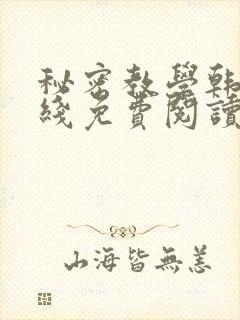 秘密教學韩
綫免費閱讀
山海皆無恙